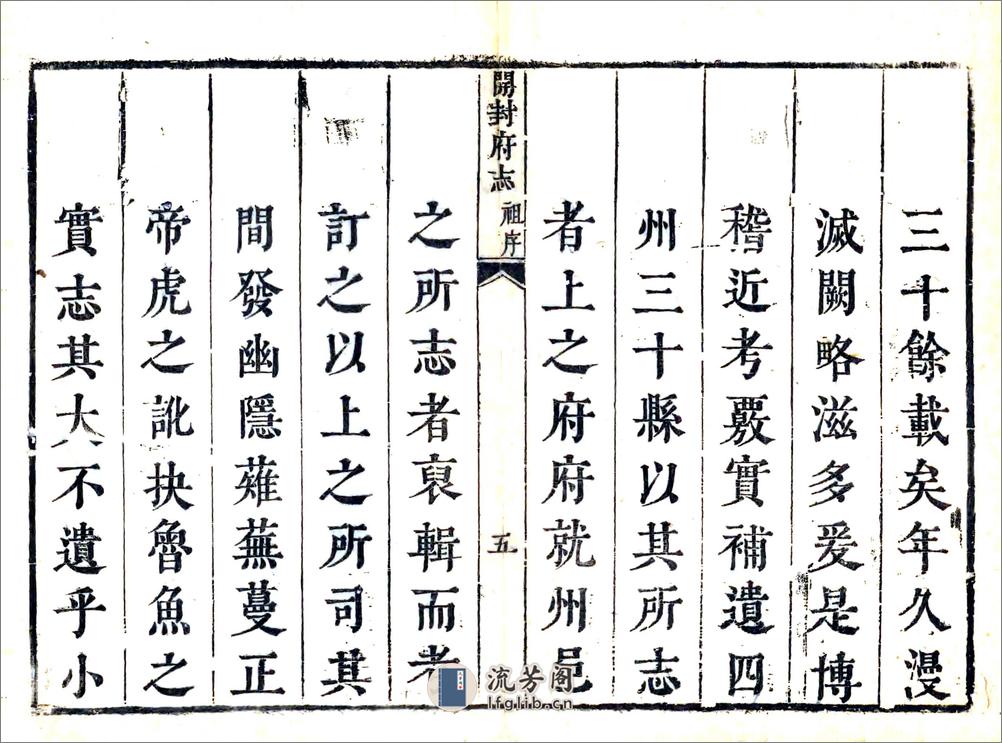 三十餘載矣年久漫
滅闕略滋多爰是博
稽近考覈實補遺四
州三十縣以其所志
者上之府府就州邑
開封府志 祖序 五
之所志者裒輯而考
訂之以上之所司其
間發幽隱薙蕪蔓正
帝虎之訛抉魯魚之
實志其大不遺乎小
流芳阁
lfglib.cn